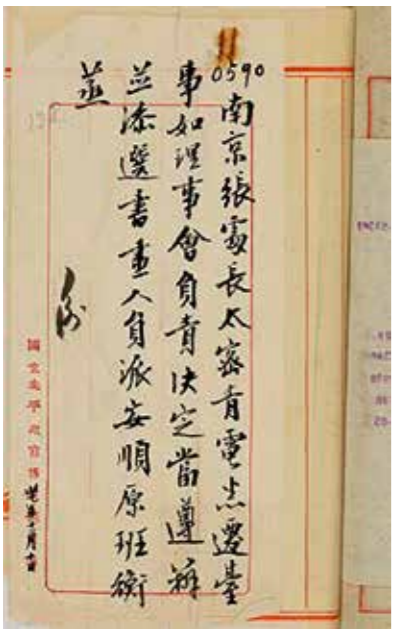 0590
南京張處長太密青電悉遷臺
事如理事會負責決定當遵辦
並添選書畫人員派妥順原班
蒸
國立北平故宮博